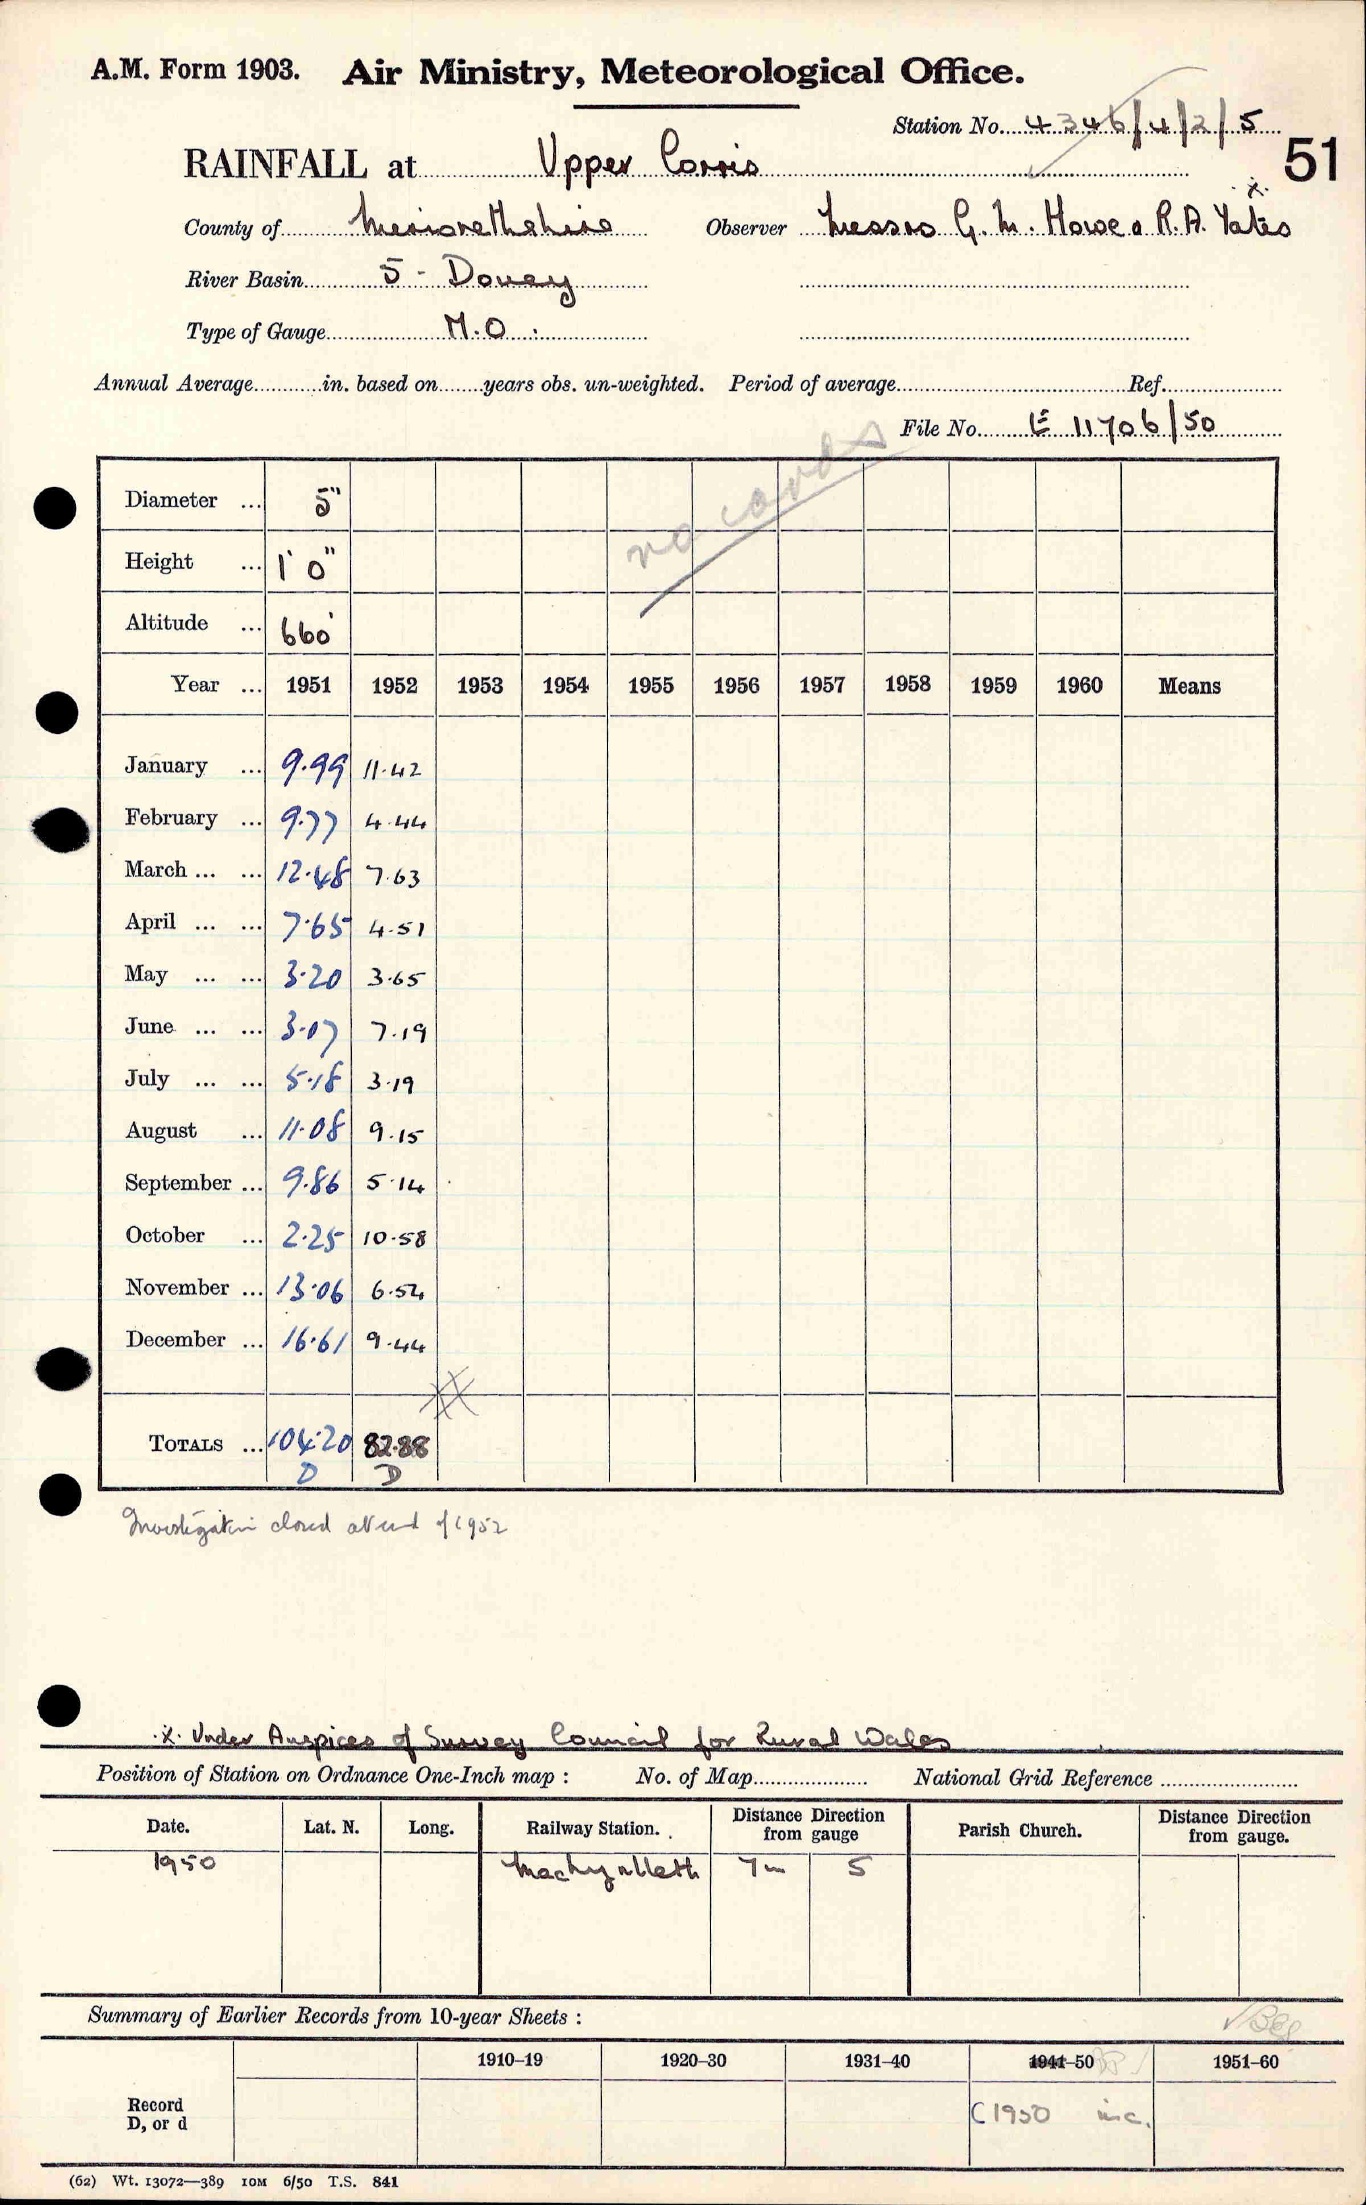 A.M. Form 1903. Air Ministry, Meteorological Office.
Station No. 4346/4/2/5
51
RAINFALL at Upper Corris
County of Merionethshire Observer Messrs G. M. Howe & R.A. Yates x
River Basin 5 - Dovey
Type of Gauge M.O.
Annual Average in. based on years obs. un-weighted. Period of average Ref.
File No. E 11706/50
no cards
Diameter ... 5"
Height ... 1' 0"
Altitude ... 660'
Year ... 1951 1952 1953 1954 1955 1956 1957 1958 1959 1960 Means
January ... 9.99 11.42
February ... 9.77 4.44
March ... ... 12.48 7.63
April ... ... 7.65 4.51
May ... ... 3.20 3.65
June ... ... 3.07 7.19
July ... ... 5.18 3.19
August ... 11.08 9.15
September ... 9.86 5.14
October ... 2.25 10.58
November ... 13.06 6.54
December ... 16.61 9.44
TOTALS ... 104.20 82.88
D D
Investigation closed at end of 1952
x Under Auspices of Survey Council for Rural Wales
Position of Station on Ordnance One-Inch map : No. of Map National Grid Reference
Date. Lat. N. Long. Railway Station. Distance Direction from gauge Parish Church. Distance Direction from gauge.
1950 Machynlleth 7m S
Summary of Earlier Records from 10-year Sheets :
1910–19 1920–30 1931–40 1941–50 1951–60
Record D, or d
C 1950 inc.
(62) Wt. 13072—389 10M 6/50 T.S. 841